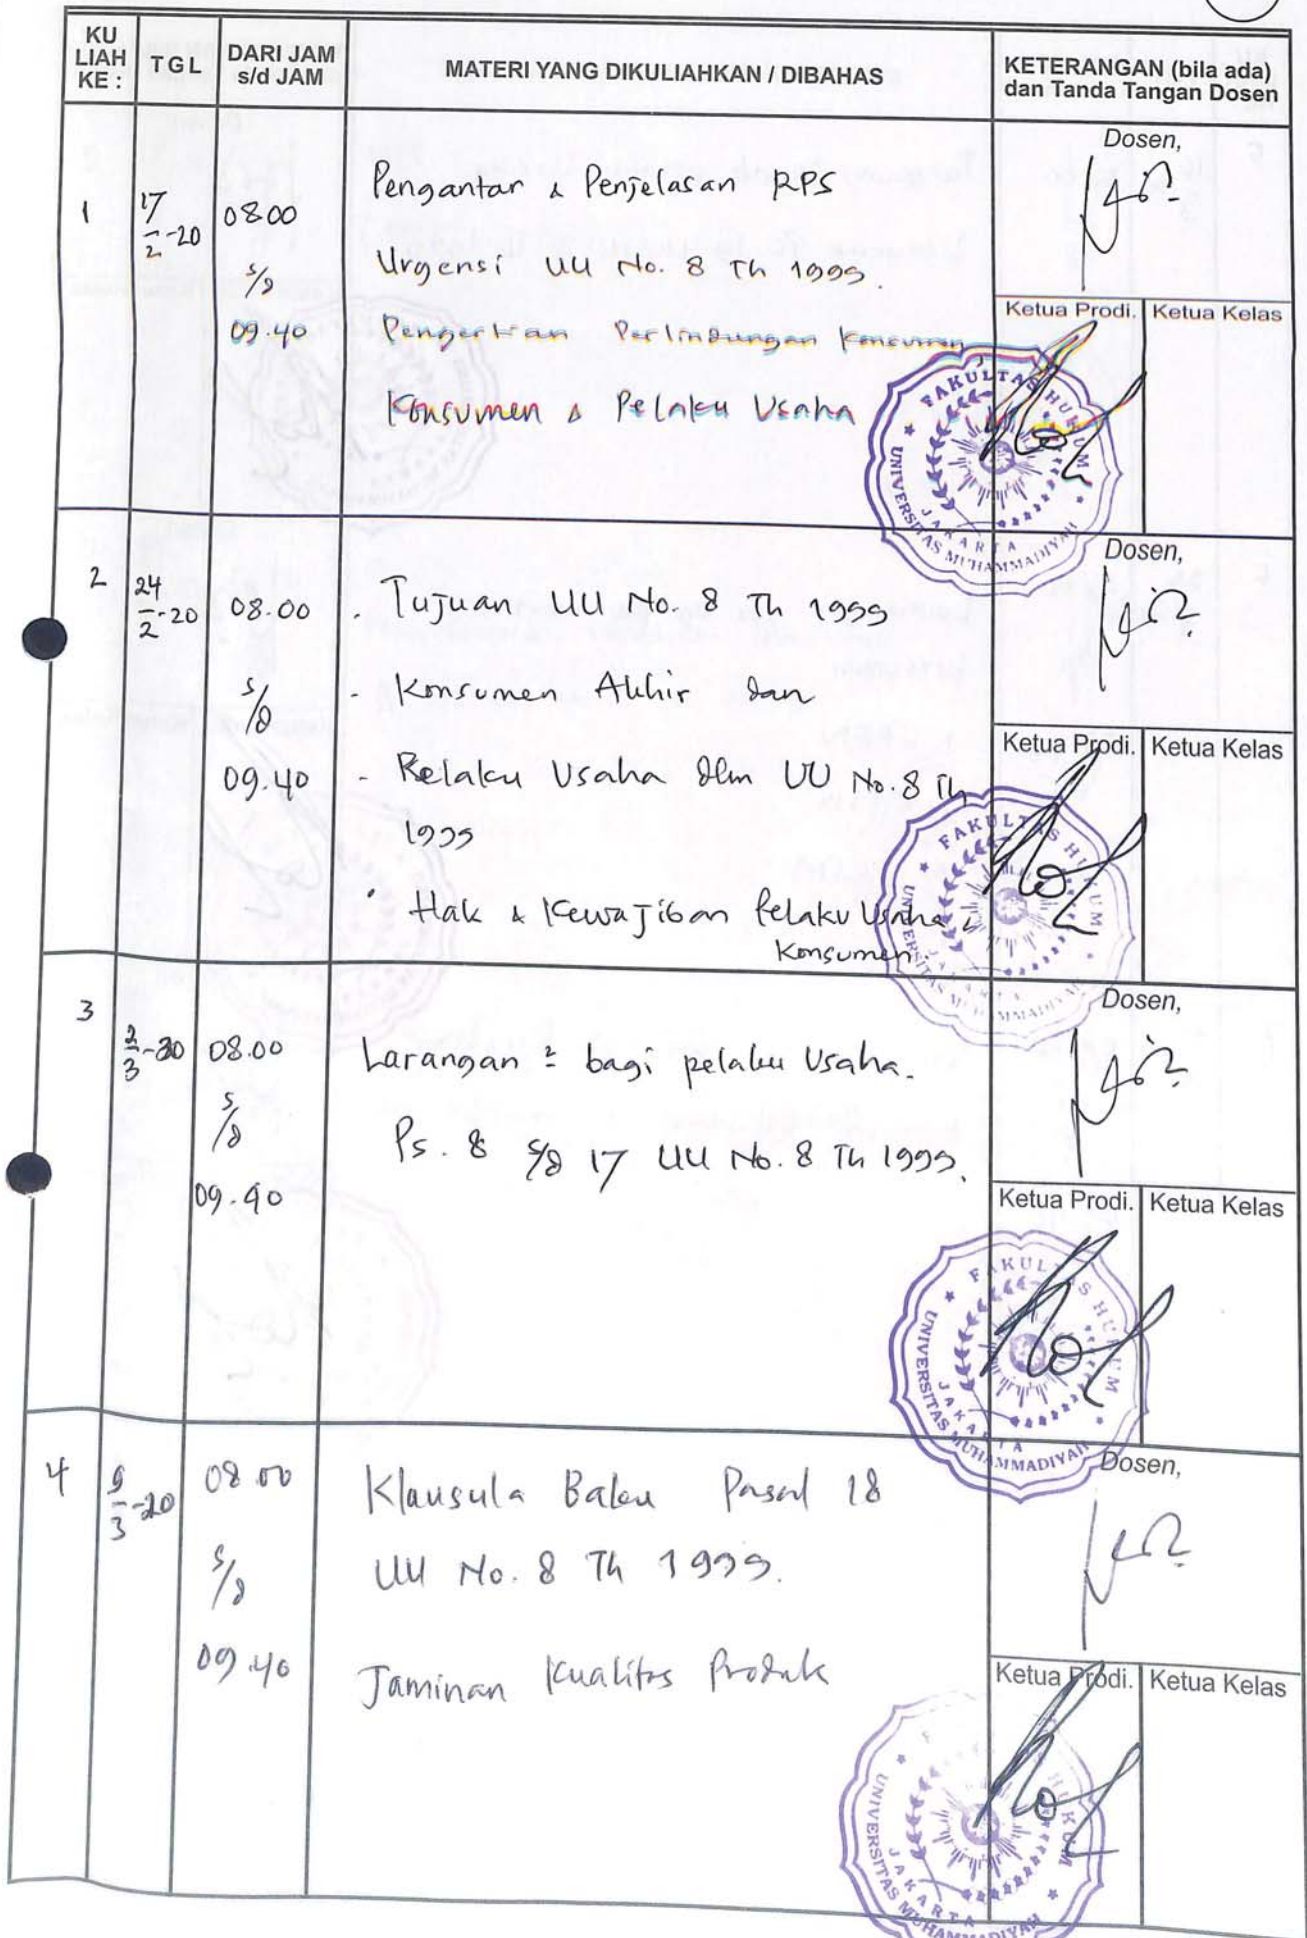 KU LIAH KE :
TGL
DARI JAM s/d JAM
MATERI YANG DIKULIAHKAN / DIBAHAS
KETERANGAN (bila ada) dan Tanda Tangan Dosen
1
17/2-20
08.00
s/d
09.40
Pengantar & Penjelasan RPS
Urgensi UU No. 8 Th 1999.
Pengertian Perlindungan Konsumen
Konsumen & Pelaku Usaha
Dosen,
Ketua Prodi.
Ketua Kelas
FAKULTAS HUKUM
UNIVERSITAS MUHAMMADIYAH
JAKARTA
2
24/2-20
08.00
s/d
09.40
. Tujuan UU No. 8 Th 1999
- Konsumen Akhir dan
- Pelaku Usaha dlm UU No. 8 Th
1999
Hak & Kewajiban Pelaku Usaha &
Konsumen.
Dosen,
Ketua Prodi.
Ketua Kelas
FAKULTAS HUKUM
UNIVERSITAS MUHAMMADIYAH
JAKARTA
3
2/3-20
08.00
s/d
09.40
Larangan ² bagi pelaku Usaha.
Ps. 8 s/d 17 UU No. 8 Th 1999.
Dosen,
Ketua Prodi.
Ketua Kelas
FAKULTAS HUKUM
UNIVERSITAS MUHAMMADIYAH
JAKARTA
4
9/3-20
08.00
s/d
09.40
Klausula Baku Pasal 18
UU No. 8 Th 1999.
Jaminan Kualitas Produk
Dosen,
Ketua Prodi.
Ketua Kelas
HUKUM
UNIVERSITAS MUHAMMADIYAH
JAKARTA